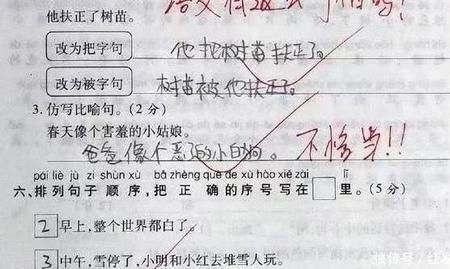 他扶正了树苗。
改为把字句
他把树苗扶正了。
改为被字句
树苗被他扶正了。
3. 仿写比喻句。(2 分)
春天像个害羞的小姑娘。
爸爸像个恶的小白狗。
不恰当!!
pái liè jù zi shùn xù bǎ zhèng què de xù hào xiě zài lǐ
六、排列句子 顺序,把 正 确 的 序 号 写 在 里。(5 分)
2 早上,整个世界都白了。
3 中午,雪停了,小明和小红去堆雪人玩。